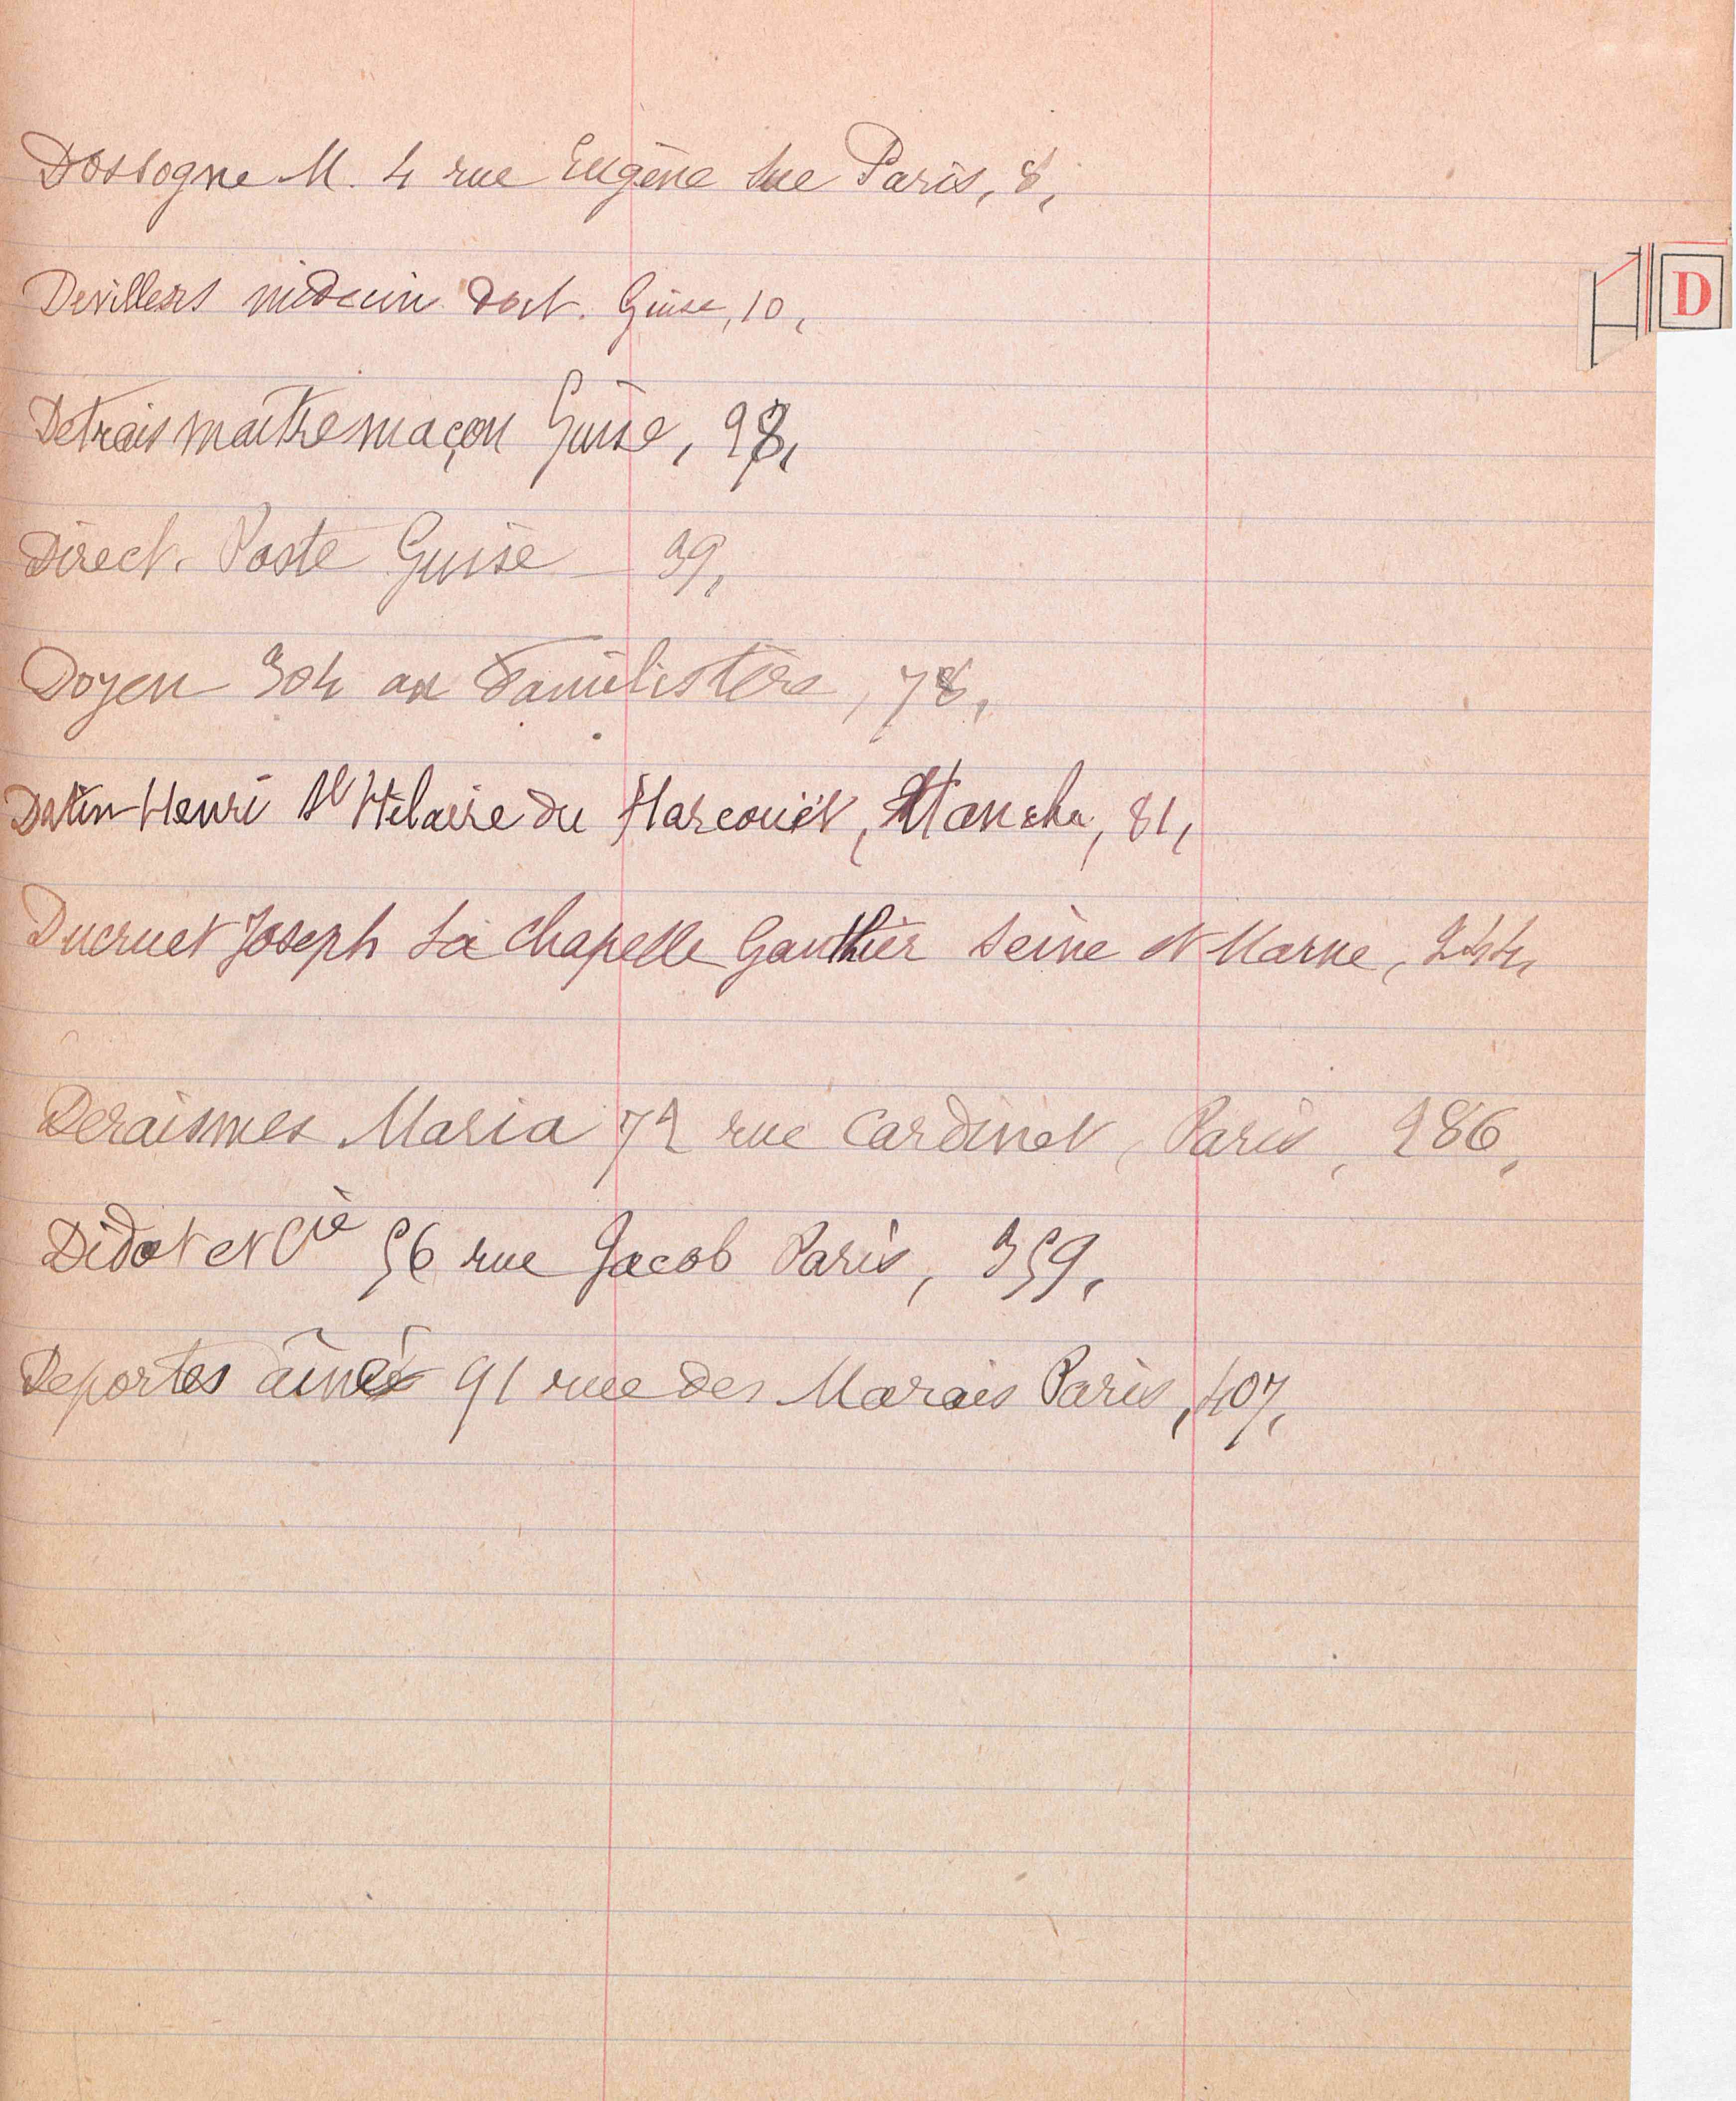 Dossogne M. 4 rue Eugène Sue Paris, 8,
D
Devillers médecin doct. Guise, 10,
Detrais maître maçon Guise, 28,
Direct. Poste Guise 39,
Doyen 304 au Familistère, 78,
Datin Henri St Hilaire du Harcouët, Manche, 81,
Ducruet Joseph La Chapelle Gauthier Seine et Marne, 244,
Deraismes Maria 72 rue Cardinet, Paris, 286,
Didot et Cie 56 rue Jacob Paris, 359,
Deportes aîné 91 rue des Marais Paris, 407,